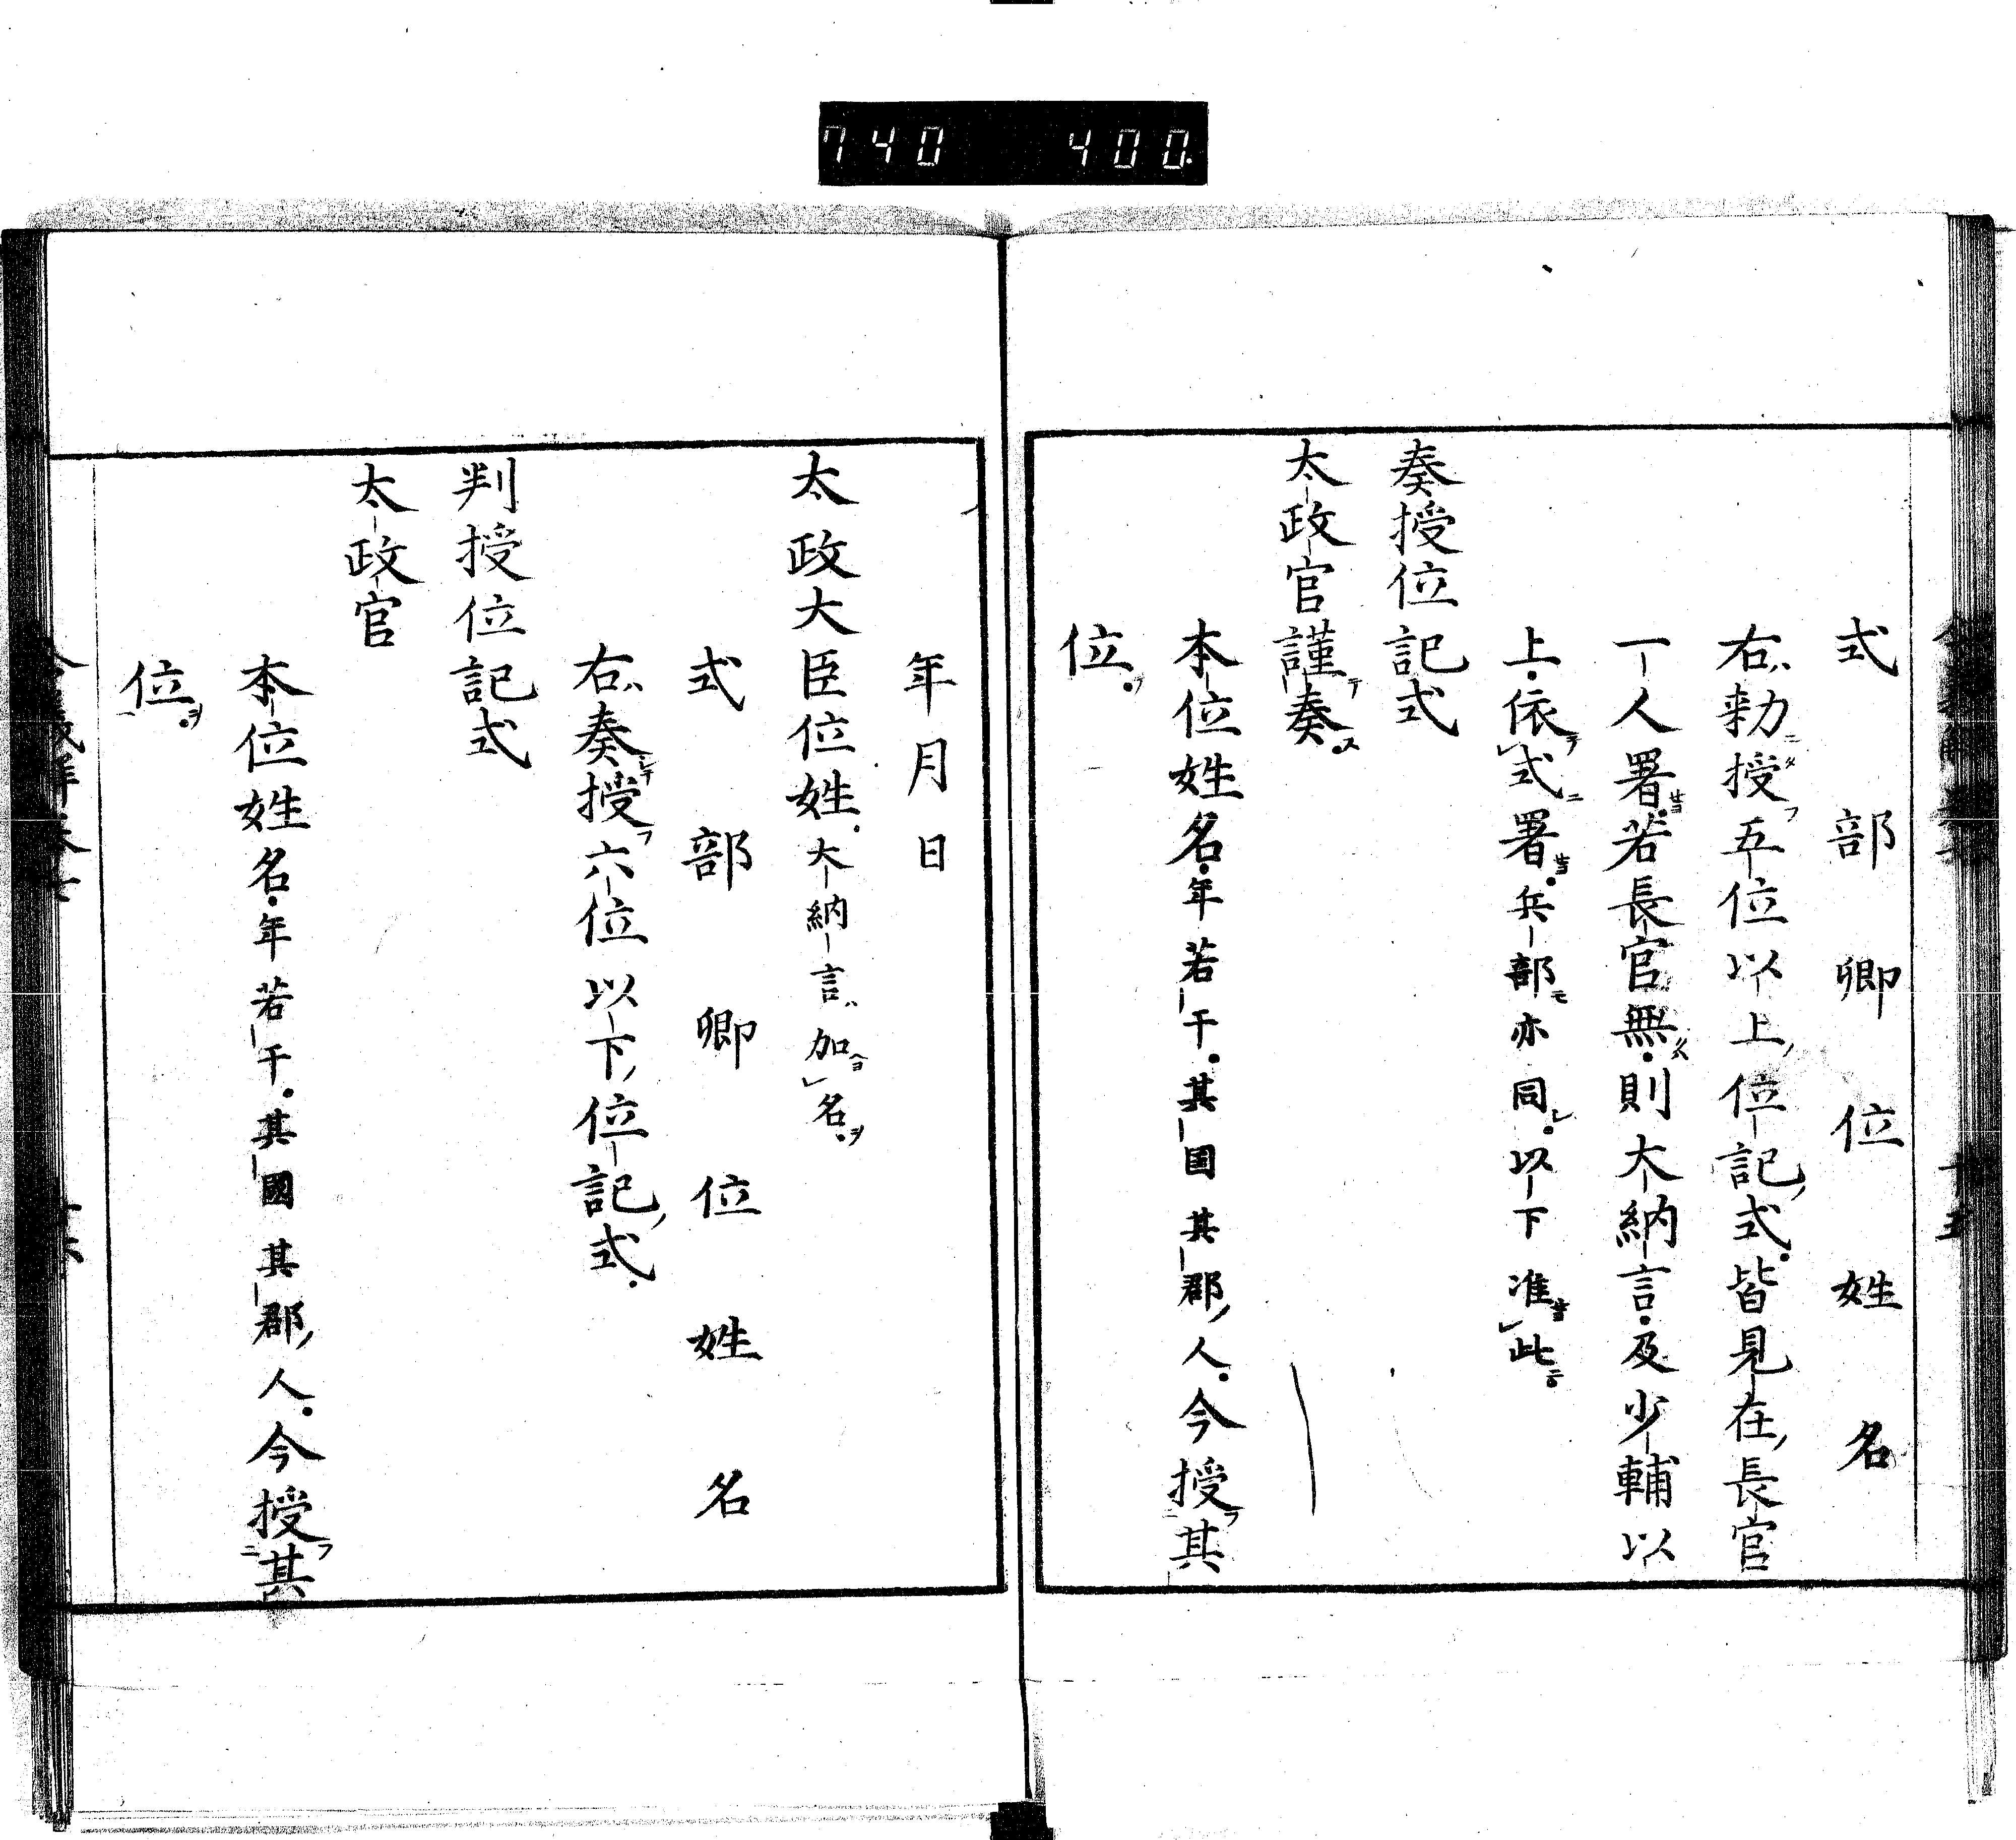 740 400.
式部卿位姓名
右勅授五位以上位記式皆見在長官
一人署若長官無則大納言及少輔以
上依式署兵部亦同以下准此
奏授位記式
太政官謹奏
本位姓名年若干其国其郡人今授其
位
年月日
太政大臣位姓大納言加名
式部卿位姓名
右奏授六位以下位記式
判授位記式
太政官
本位姓名年若干其國其郡人今授其
位